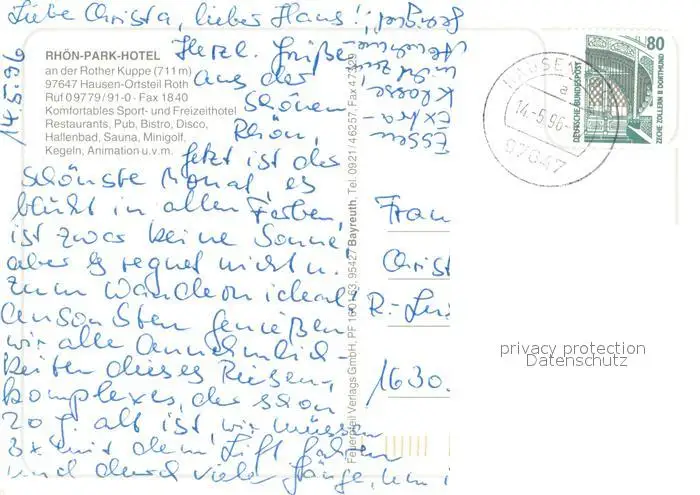 Liebe Christa, lieber Hans!
14.5.96
RHÖN-PARK-HOTEL
an der Rother Kuppe (711 m)
97647 Hausen-Ortsteil Roth
Ruf 09779/91-0 · Fax 1840
Komfortables Sport- und Freizeithotel
Restaurants, Pub, Bistro, Disco,
Hallenbad, Sauna, Minigolf,
Kegeln, Animation u.v.m.
Herzl. Grüße
aus der
schönen
Rhön,
Jetzt ist der
schönste Monat, es
blüht in allen Farben,
ist zwar keine Sonne
aber es regnet nicht u.
zum Wandern ideal.
Ansonsten genießen
wir alle Annehmlich-
keiten dieses Riesen-
komplexes, der schon
20 J. alt ist, wir müssen
3x mit dem Lift fahren
und durch viele Gänge, um
Essen
Extra-
Klasse
Feuerpfeil Verlags GmbH, PF 95427 Bayreuth, Tel. 0921/46257, Fax 47329
HAUSEN
a
14.-5.96-
97647
80
DEUTSCHE BUNDESPOST
ZECHE ZOLLERN II DORTMUND
Frau
Christ
1630
privacy protection
Datenschutz